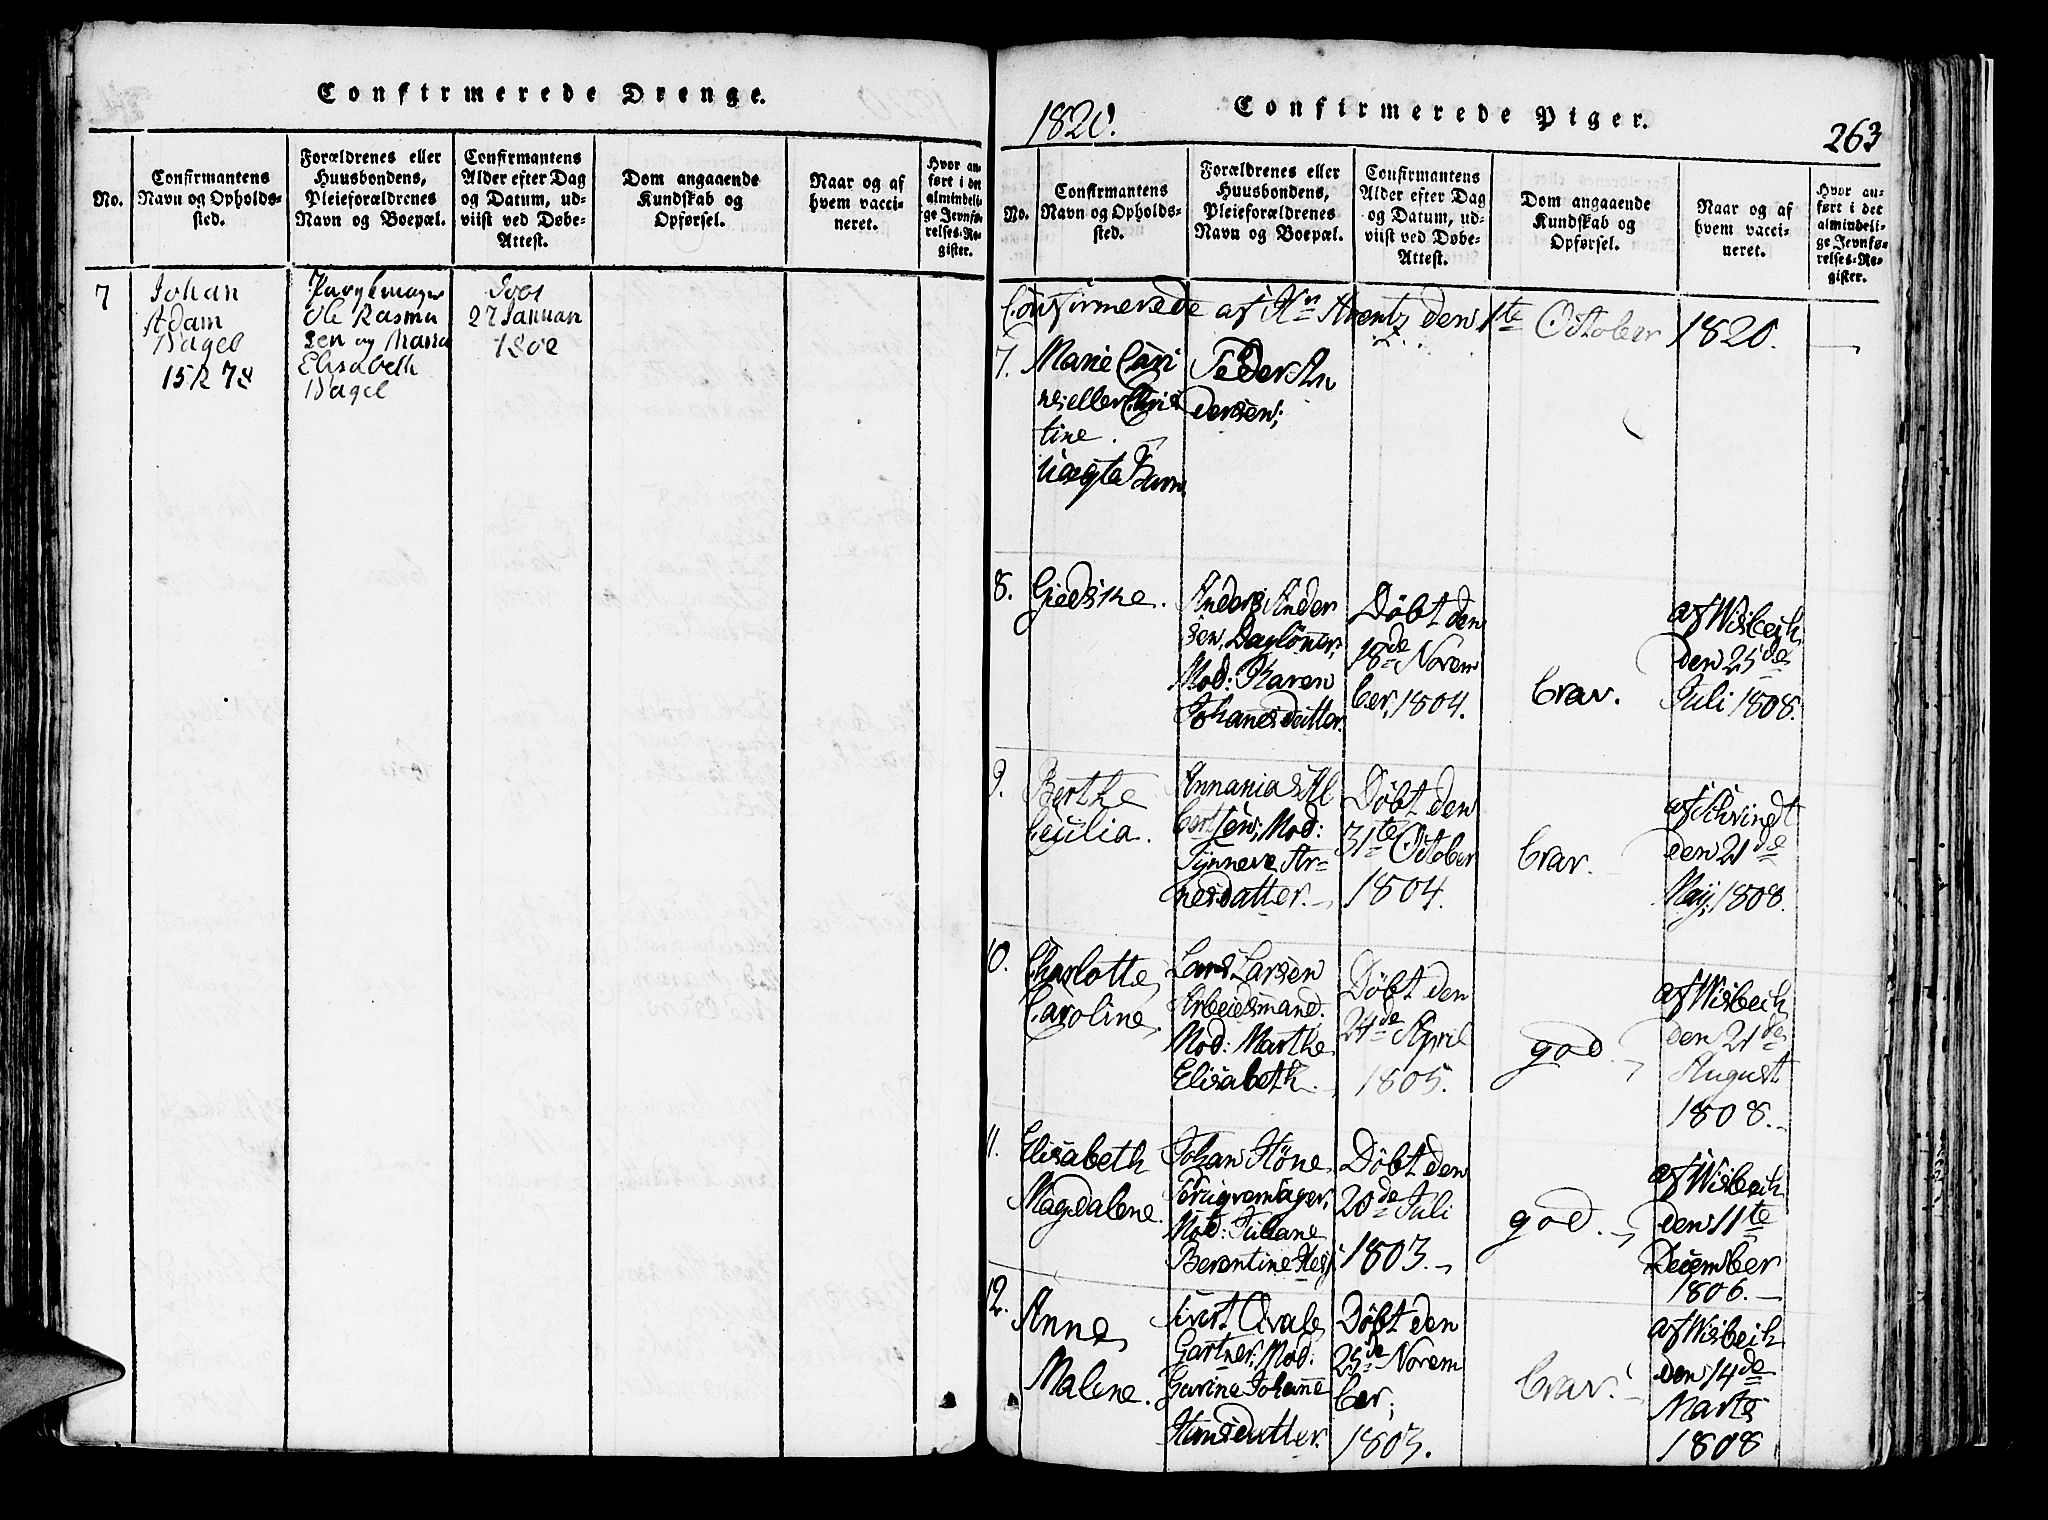 Confirmerede Drenge.
No.
Confirmantens
Navn og Opholds-
sted.
Forældrenes eller
Huusbondens,
Pleieforældrenes
Navn og Boepæl.
Confirmantens
Alder efter Dag
og Datum, ud-
viist ved Døbe-
Attest.
Dom angaaende
Kundskab og
Opførsel.
Naar og af
hvem vacci-
neret.
Hvor an-
ført i det
almindeli-
ge Jevnfø-
relses-Re-
gister.
7
Johan
Adam
Nagel
Ole Rasmu
sen og Maria
Elisabeth
Nagel
27 Januari
1820.
Confirmerede Piger.
263
No.
Confirmantens
Navn og Opholds-
sted.
Forældrenes eller
Huusbondens,
Pleieforældrenes
Navn og Boepæl.
Confirmantens
Alder efter Dag
og Datum, ud-
viist ved Døbe-
Attest.
Dom angaaende
Kundskab og
Opførsel.
Naar og af
hvem vacci-
neret.
Hvor an-
ført i det
almindeli-
ge Jevnfø-
relses-Re-
gister.
Confirmerede af Hn Arentz den 1te October 1820.
7.
Marie Cari
ne eller Chris
tine.
Uægte Barn
Peder An
dersen;
8.
Giedske.
Anders Ander
sen, Daglönner,
Mod: Karen
Johanesdatter.
Döbt den
18de Novem
ber, 1804.
brav.
af Wisbech
den 25de
Juli 1808.
9.
Berthe
Cecilia.
Annanias Al
bertsen; Mod:
Synneve Ar-
nesdatter.
Döbt den
31te October
1804.
brav.
af Schvindt
den 21de
May, 1808.
10.
Charlotte
Caroline.
Lars Larsen
Arbeidsmand.
Mod: Marthe
Elisabeth.
Döbt den
24de April
1805.
god.
af Wisbech
den 21de
August
1808.
11.
Elisabeth
Magdalene.
Johan Höne
Perugvemager,
Mod: Juliane
Berentine
Döbt den
20de Juli
1803.
god.
af Wisbech
den 11te
December
1806.
12.
Anne
Malene.
Sivert Qvale
Gartner, Mod:
Gurine Johanne
Hansdatter.
Döbt den
25de Novem
ber,
1803.
brav.
af Wisbech
den 14de
Marts
1808